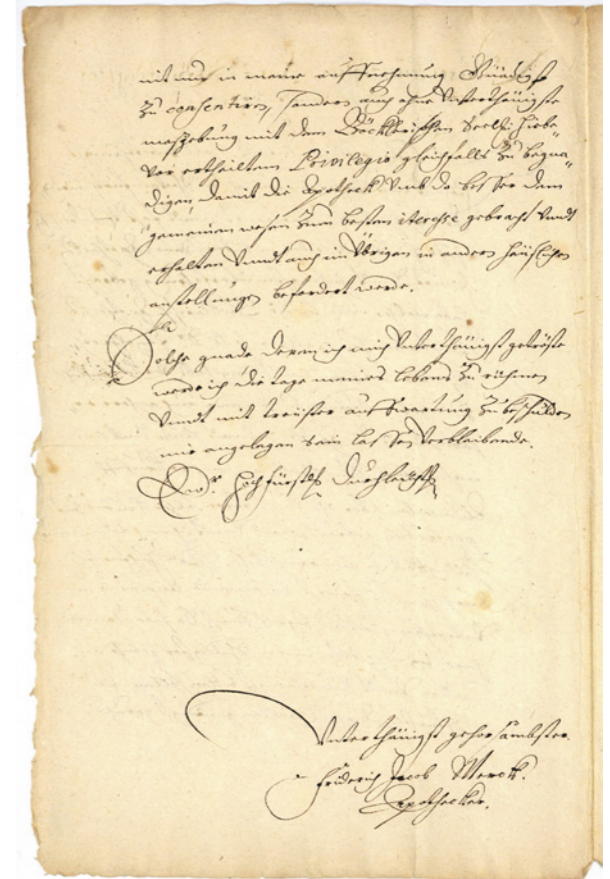 nit nur in meine auffnehmung Gnädigst
zu consentiren, sondern auch ohne Unterthänigste
maßgebung mit dem Böcklerischen Seel. hiebe-
vor ertheiltem Privilegio gleichfalls zu begna-
digen, damit die Apotheck umb do besser dem
gemeinen wesen zum besten iteresse gebracht undt
erhalten undt auch im übrigen in andern häußlichen
anstellungen befördert werde.
Solche gnade deren ich mich Unterthänigst getröste
werde ich die tage meines lebens zu rühmen
Undt mit treüster auffwartung zu beschulden
mir angelegen sein lassen, Verbleibende.
Ew. Hochfürstl. Durchleücht
Unterthänigst gehorsambster.
Friderich Jacob Merck.
Apothecker.